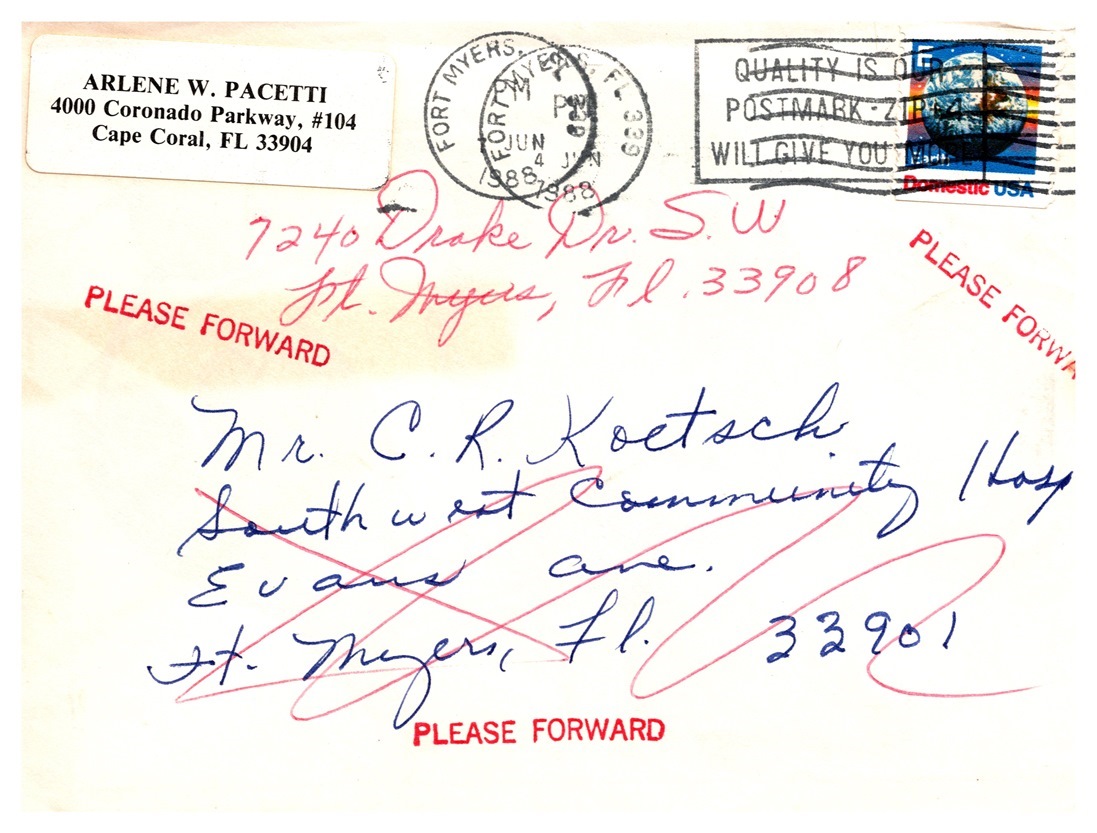 ARLENE W. PACETTI
4000 Coronado Parkway, #104
Cape Coral, FL 33904
FORT MYERS,
PM
JUN
1988
FORT MYERS, FL 339
PM
4 JUN
1988
QUALITY IS OUR
POSTMARK - ZIP+4
WILL GIVE YOU MORE
E
Domestic USA
7240 Drake Dr. S.W
Ft. Myers, Fl. 33908
PLEASE FORWARD
PLEASE FORWA
Mr. C. R. Koetsch
Southwest Community Hosp
Evans ave.
Ft. Myers, Fl. 33901
PLEASE FORWARD